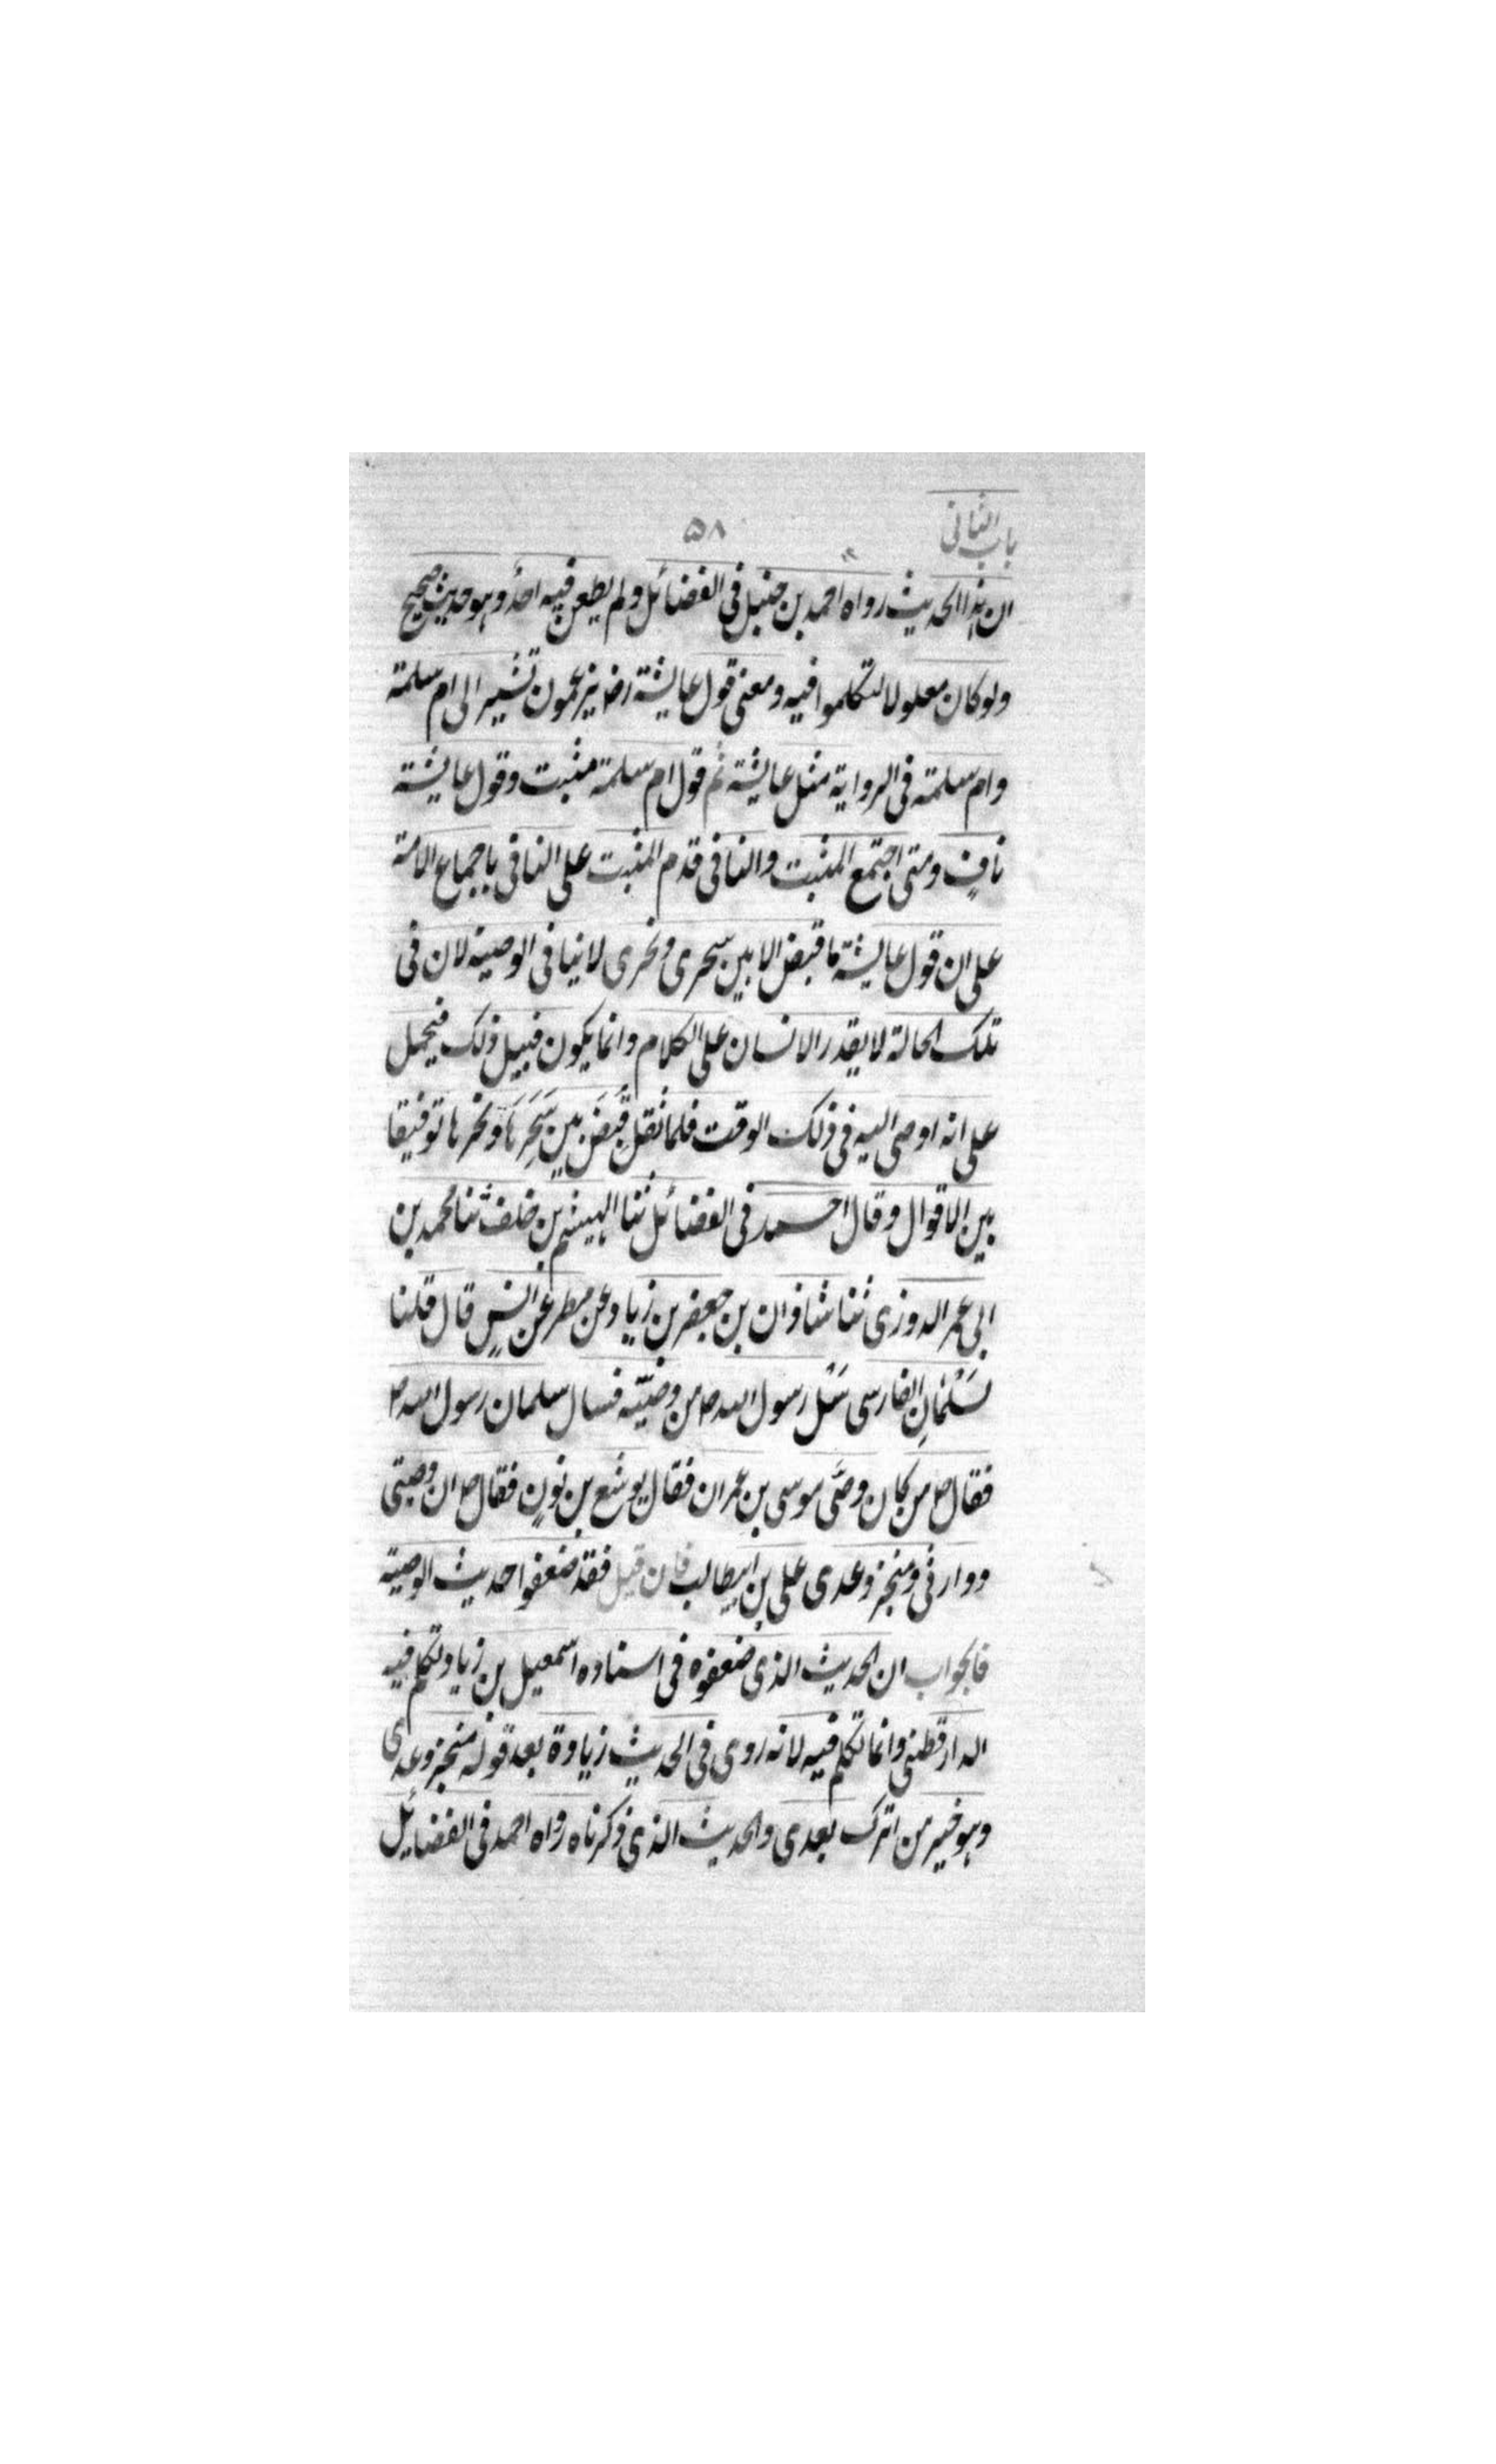 باب الثانی
۵۸
ان هذا الحدیث رواه احمد بن حنبل فی الفضائل ولم یطعن فیه احدٌ وهو حدیث صحیح
ولو کان معلولا لتکلموا فیه ومعنی قول عایشة رض یزعمون تشیر الی ام سلمة
وام سلمة فی الروایة مثل عایشة ثم قول ام سلمة مثبت وقول عایشة
نافٍ ومتی اجتمع المثبت والنافی قدم المثبت علی النافی باجماع الامة
علی ان قول عایشة ما قبض الا بین سحری ونحری لا ینافی الوصیة لان فی
تلک الحالة لا یقدر الانسان علی الکلام وانما یکون قبیل ذلک فیحمل
علی انه اوصی الیه فی ذلک الوقت فلما ثقل قُبِضَ بین سَحَرِهَا ونحرها توفیقا
بین الاقوال وقال احمد فی الفضائل ثنا الهیثم بن خلف ثنا محمد بن
ابی عمر الدوزی ثنا شاذان بن جعفر بن زیاد عن مطر عن انسٍ قال قلنا
لسَلْمَانِ الفارسی سَلْ رسول الله ص من وصیّه فسال سلمان رسول الله ص
فقال ص من کان وصَّی موسی بن عمران فقال یوشع بن نونٍ فقال ص ان وصیتی
ووارثی ومنجز وعدی علی بن ابیطالب فان قیل فقد ضعفوا حدیث الوصیة
فالجواب ان الحدیث الذی ضعفوه فی اسناده اسمعیل بن زیاد تکلم فیه
الدارقطنی وانما تکلم فیه لانه روی فی الحدیث زیادة بعد قوله منجز وعدی
وهو خیر من اترک بعدی والحدیث الذی ذکرناه رواه احمد فی الفضائل